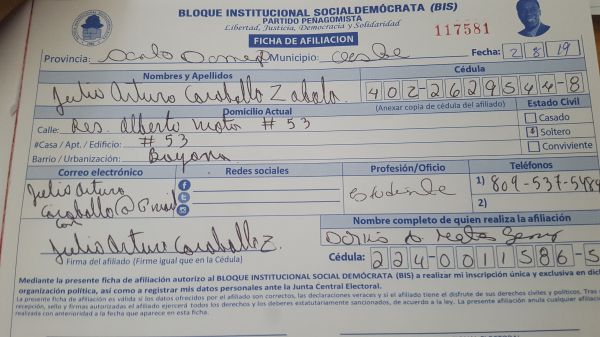 BLOQUE INSTITUCIONAL SOCIALDEMÓCRATA (BIS)
PARTIDO PEÑAGOMISTA
Libertad, Justicia, Democracia y Solidaridad
117581
FICHA DE AFILIACION
Provincia: Santo Domingo Municipio: Oeste Fecha: 2 8 19
Nombres y Apellidos Cédula
Julio Arturo Caraballo Zabala 402-2629544-8
Domicilio Actual (Anexar copia de cédula del afiliado) Estado Civil
Calle: Res. Alberto # 53 Casado
#Casa / Apt. / Edificio: # 53 Soltero
Barrio / Urbanización: Bayona Conviviente
Correo electrónico Redes sociales Profesión/Oficio Teléfonos
Julio Arturo Estudiante 1) 809-537-5484
Caraballo@Gmail 2)
com
Nombre completo de quien realiza la afiliación
Julio Arturo Caraballo Z.
Firma del afiliado (Firme igual que en la Cédula) Cédula: 224-0011586-5
Mediante la presente ficha de afiliación autorizo al BLOQUE INSTITUCIONAL SOCIAL DEMÓCRATA (BIS) a realizar mi inscripción única y exclusiva en dich
organización política, así como a registrar mis datos personales ante la Junta Central Electoral.
La presente ficha de afiliación es válida si los datos ofrecidos por el afiliado son correctos, las declaraciones veraces y si el afiliado tiene el disfrute de sus derechos civiles y políticos. Tras
recepción, sello y firmas autorizadas el afiliado ejercerá todos los derechos y los deberes estatutariamente sancionados, de acuerdo a la ley. La presente afiliación anula cualquier afiliación
realizada con anterioridad a la fecha que aparece en esta ficha.